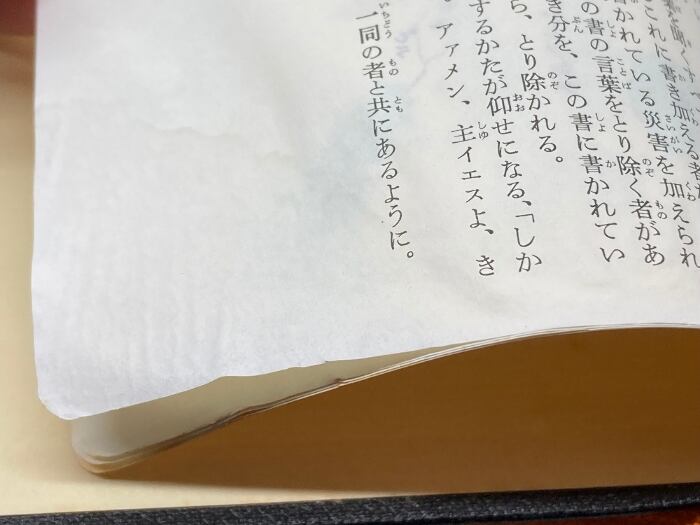 これに書き加える者が
かれている災害を加えられ
の書の言葉をとり除く者があ
き分を、この書に書かれてい
ら、とり除かれる。
するかたが仰せになる、「しか
。アァメン、主イエスよ、き
一同の者と共にあるように。